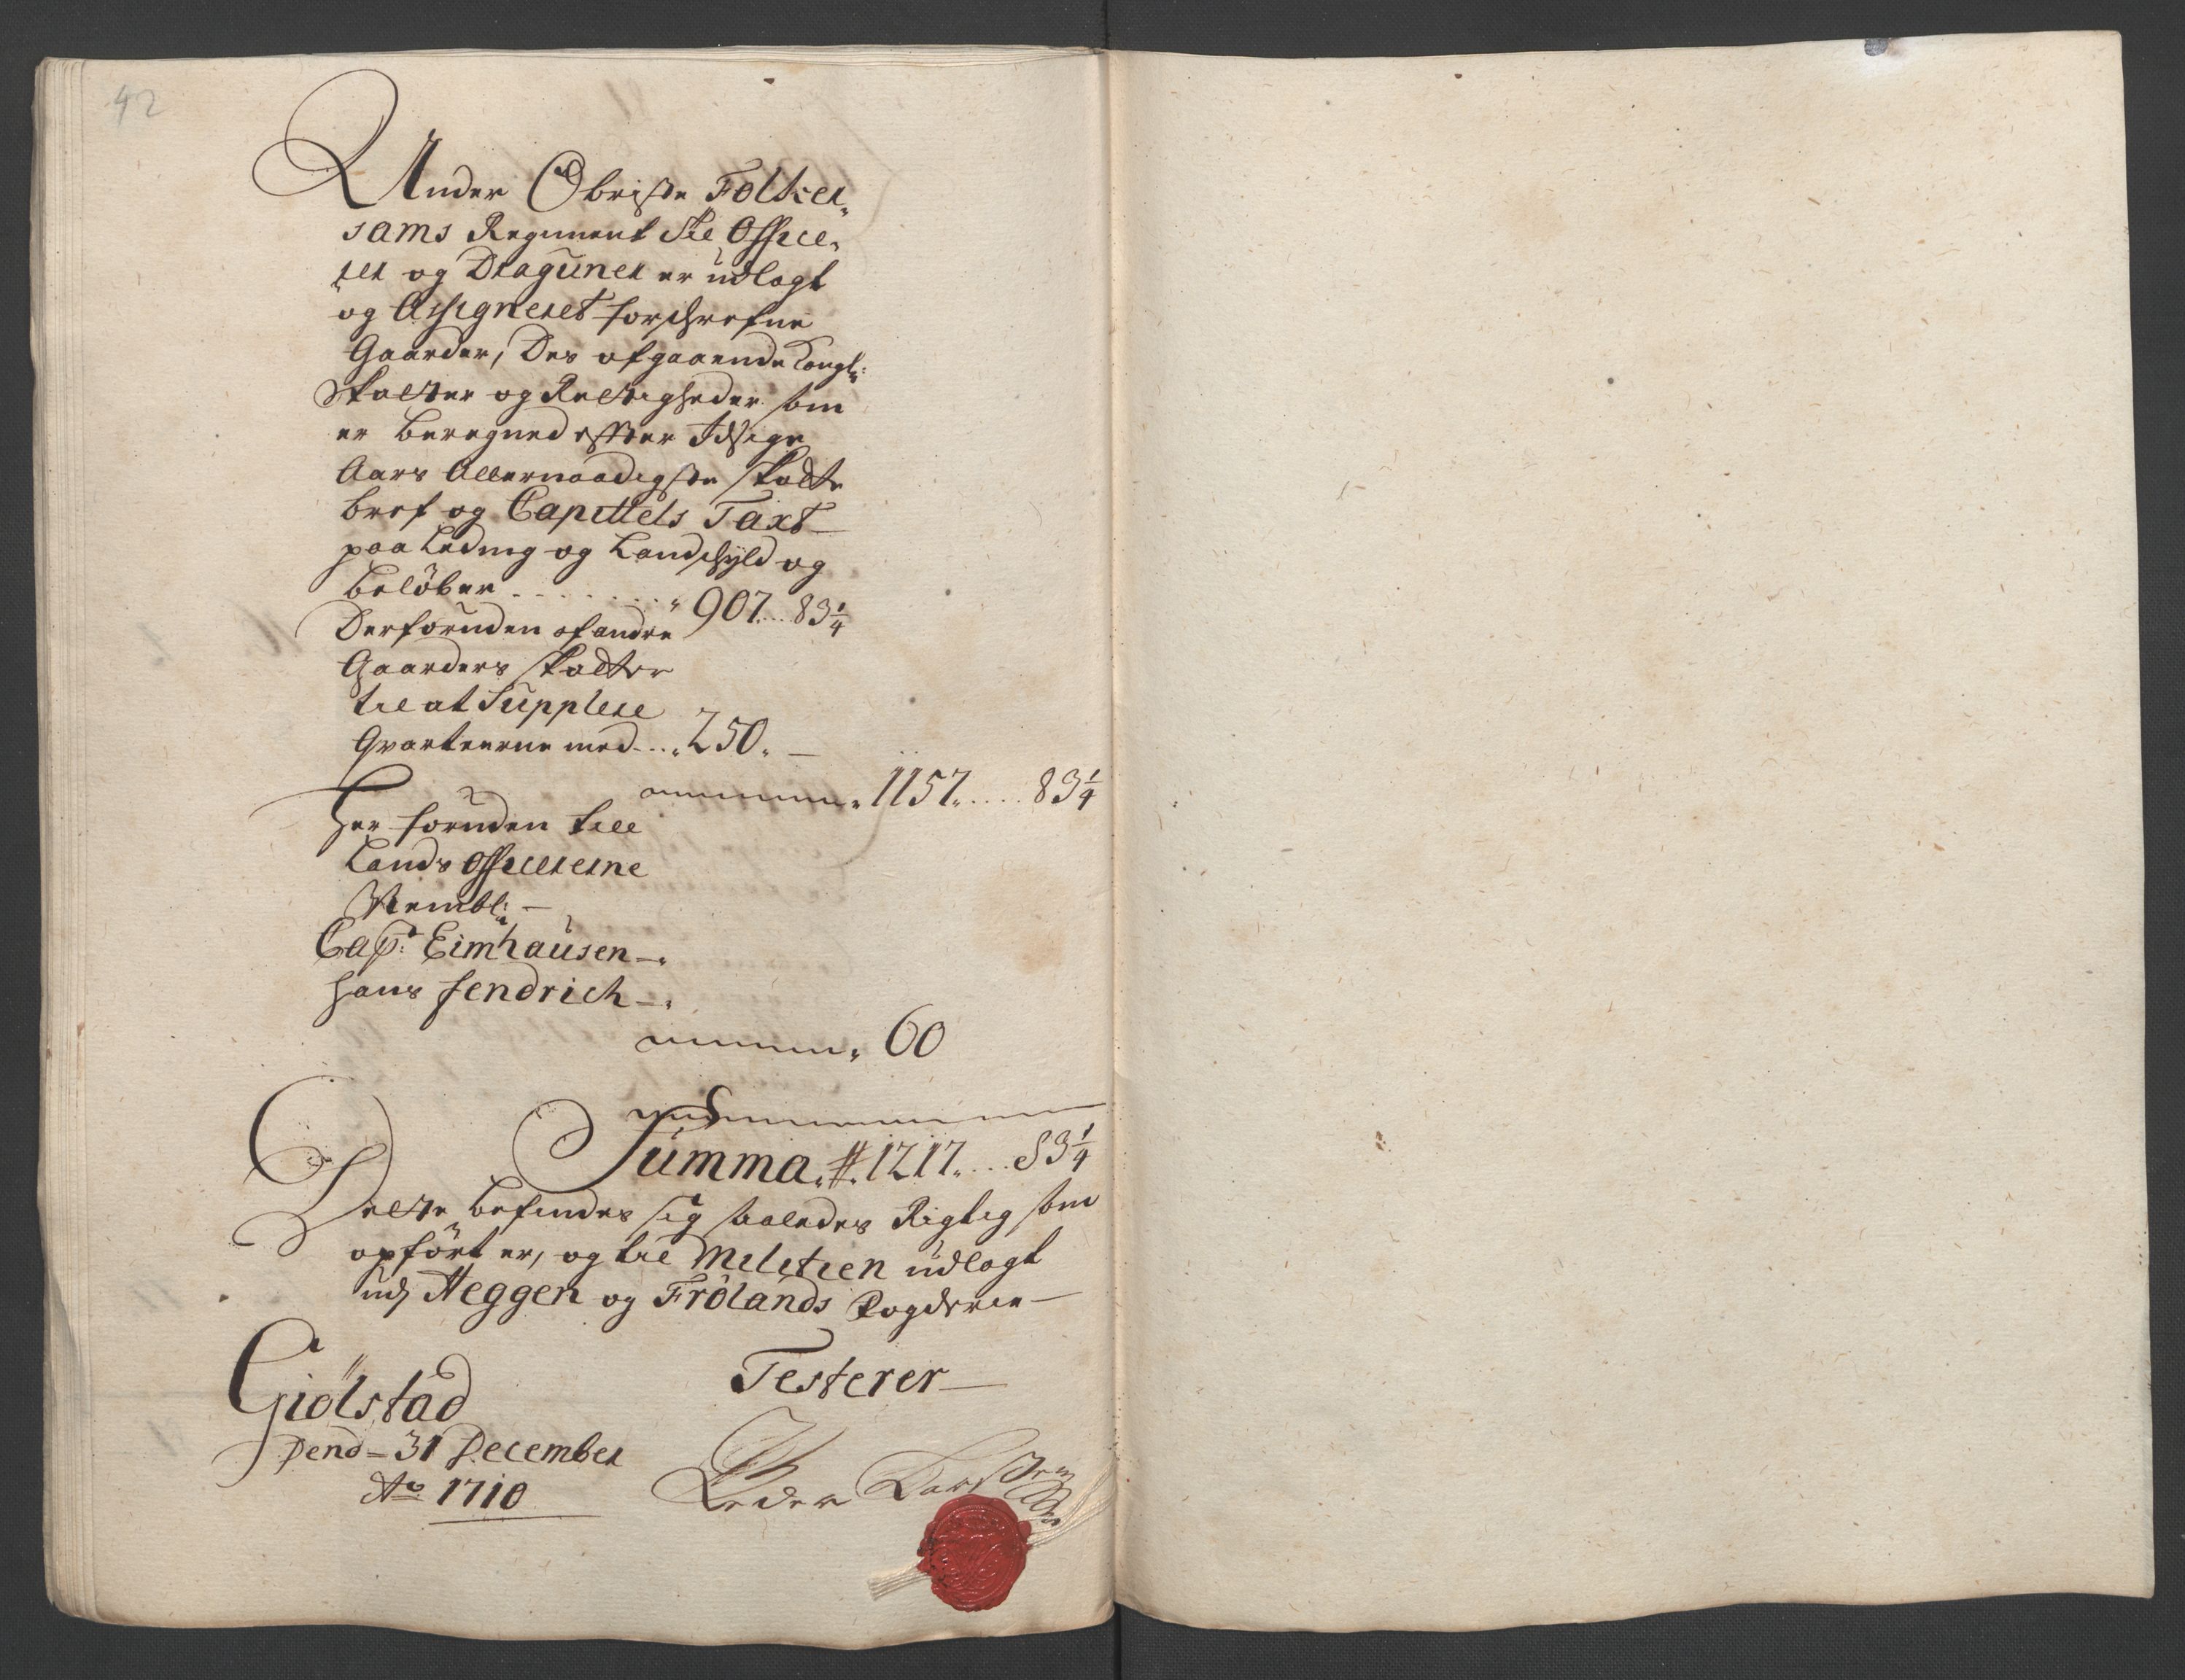 42
Under Obriste Folker„
sams Regiment Til Office„
rer og Dragüner er üdlagt
og Assigneret forschrefne
Gaarder, Des afgaaende Kongl:
Skatter og Rettigheder som
er beregned effter Idsige
Aars Allernaadigste Skatte
bref og Capittels Taxt
paa Leding og Landschyld og
beløber - - - - - - - „ 907 . . . 83¼
Derforüden af andre
Gaarders Skatter
til at Supplere
Qvarteerne med . . „ 250 „ —
„ 1157 „ . . . . 83¼
Her forüden till
Lands Officererne
Nembl: —
Cap: Eimhaüsen —„
Hans fendrich —„
„ 60
Summa „ #. 1217 „ . . . 83¼
Dette befindes sig saaledes Rigtig som
opført er, og til Militien üdlagt
üdj Heggen og Frølands Fogderie —
Giølstad
Dend — 31 December
Ao 1710
Testerer —
Peder